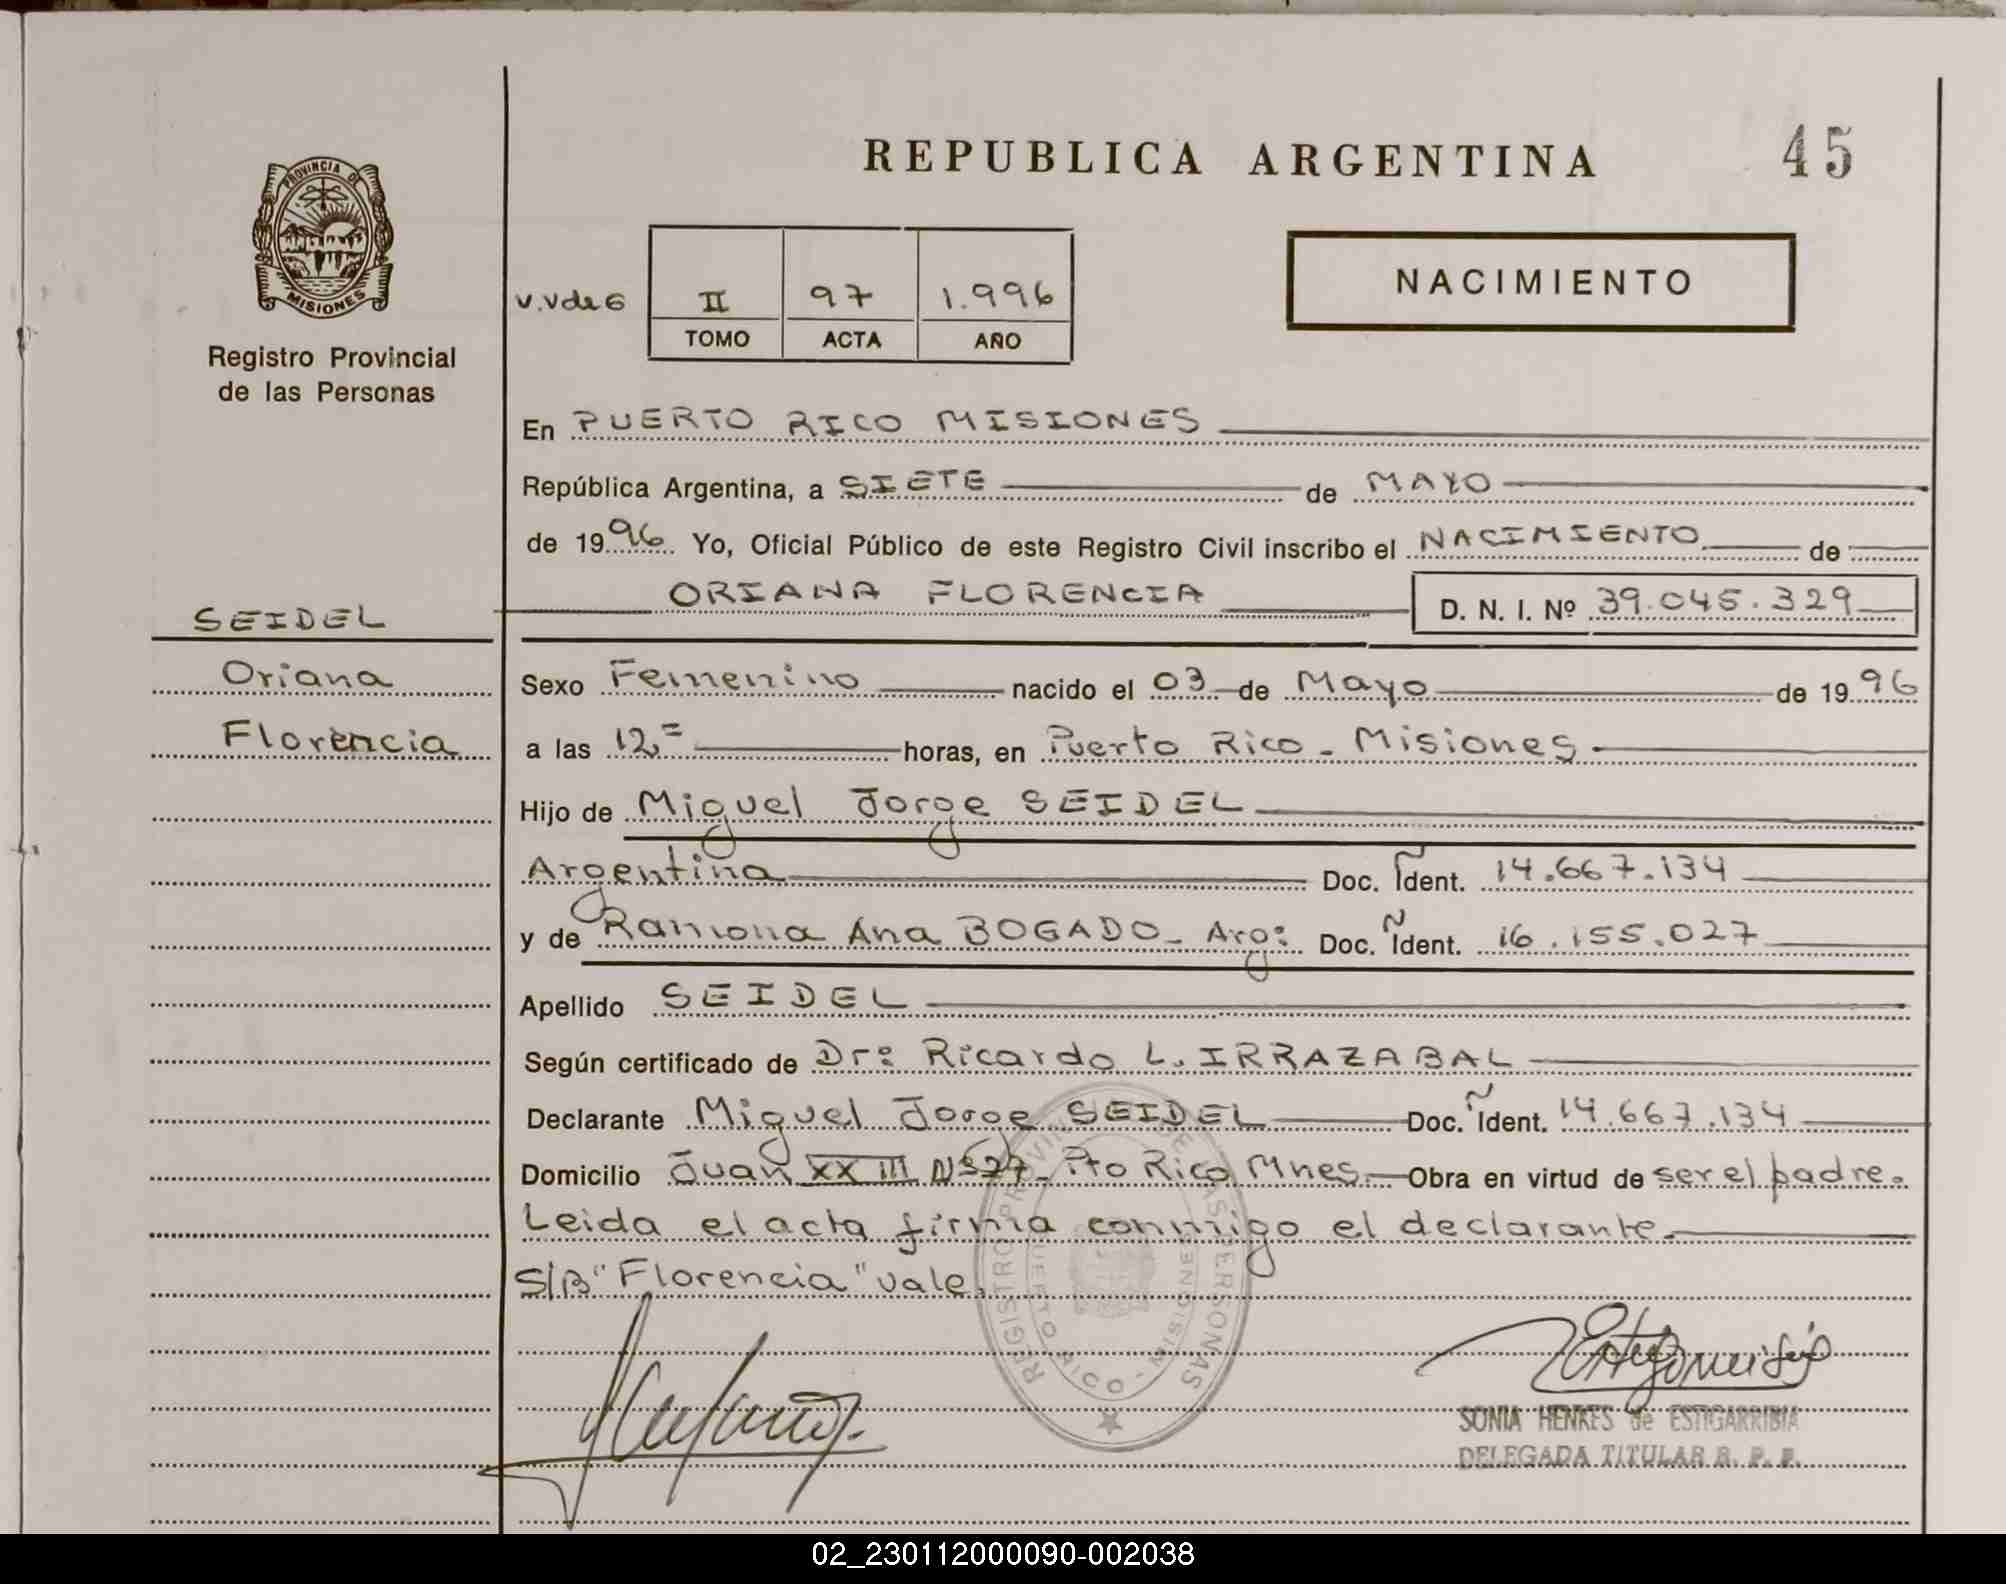 REPUBLICA ARGENTINA
45
PROVINCIA DE
MISIONES
Registro Provincial
de las Personas
V.Vde6
II 97 1.996
TOMO ACTA AÑO
NACIMIENTO
En PUERTO RICO MISIONES
República Argentina, a SIETE de MAYO
de 1996 Yo, Oficial Público de este Registro Civil inscribo el NACIMIENTO de
ORIANA FLORENCIA D. N. I. Nº 39.045.329
SEIDEL
Oriana
Florencia
Sexo Femenino nacido el 03 de Mayo de 1996
a las 12,= horas, en Puerto Rico - Misiones
Hijo de Miguel Jorge SEIDEL
Argentina Doc. Ñ Ident. 14.667.134
y de Ramona Ana BOGADO - Arg: Doc. Ñ Ident. 16.155.027
Apellido SEIDEL
Según certificado de Dr: Ricardo L. IRRAZABAL
Declarante Miguel Jorge SEIDEL Doc. Ñ Ident. 14.667.134
Domicilio Juan XXIII Nº 27 - Pto Rico Mnes. Obra en virtud de ser el padre.
Leida el acta firma conmigo el declarante.
S/B "Florencia" vale.
REGISTRO PROVINCIAL DE LAS PERSONAS
PUERTO RICO - MISIONES
SONIA HENKES de ESTIGARRIBIA
DELEGADA TITULAR R. P. P.
02_230112000090-002038